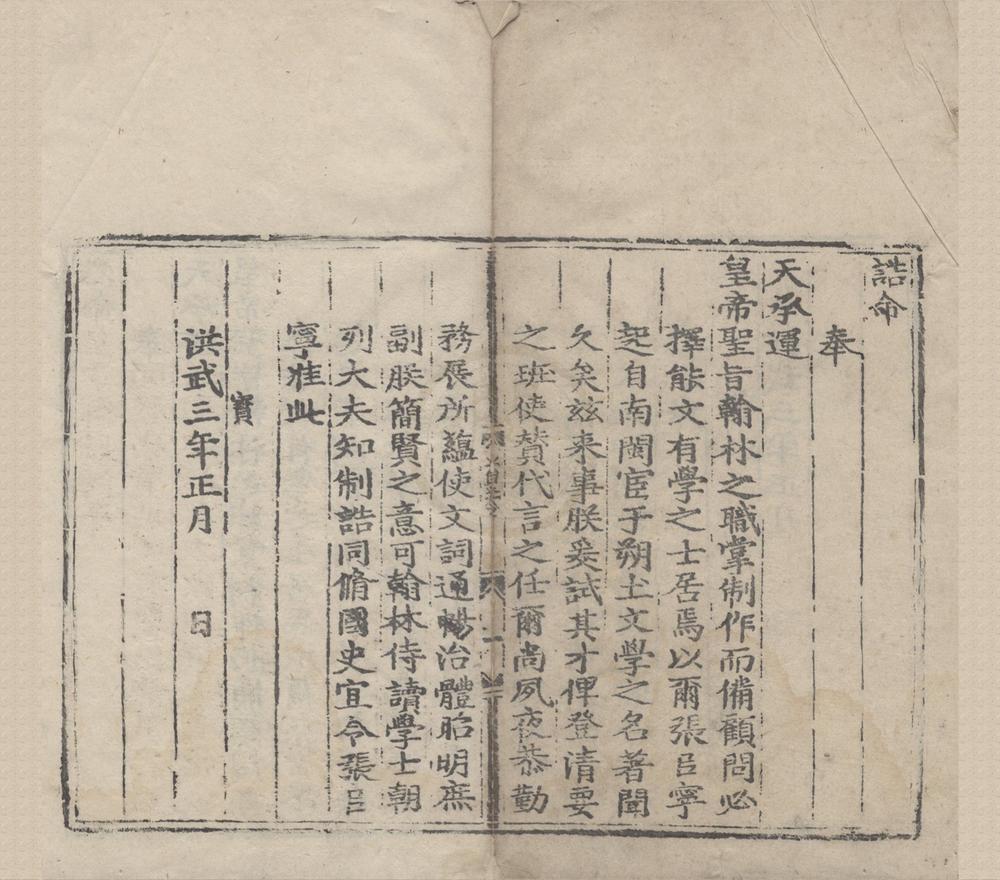 誥命
奉
天承運
皇帝聖旨翰林之職掌制作而備顧問必
擇能文有學之士居焉以爾張㠯寧
起自南閩宦于朔土文學之名著聞
久矣玆来事朕爰試其才俾登清要
之班使賛代言之任爾尚夙夜恭勤
務展所蘊使文詞通暢治體昭明庶
副朕簡賢之意可翰林侍讀學士朝
列大夫知制誥同脩國史宜令張㠯
寧准此
寳
洪武三年正月　日